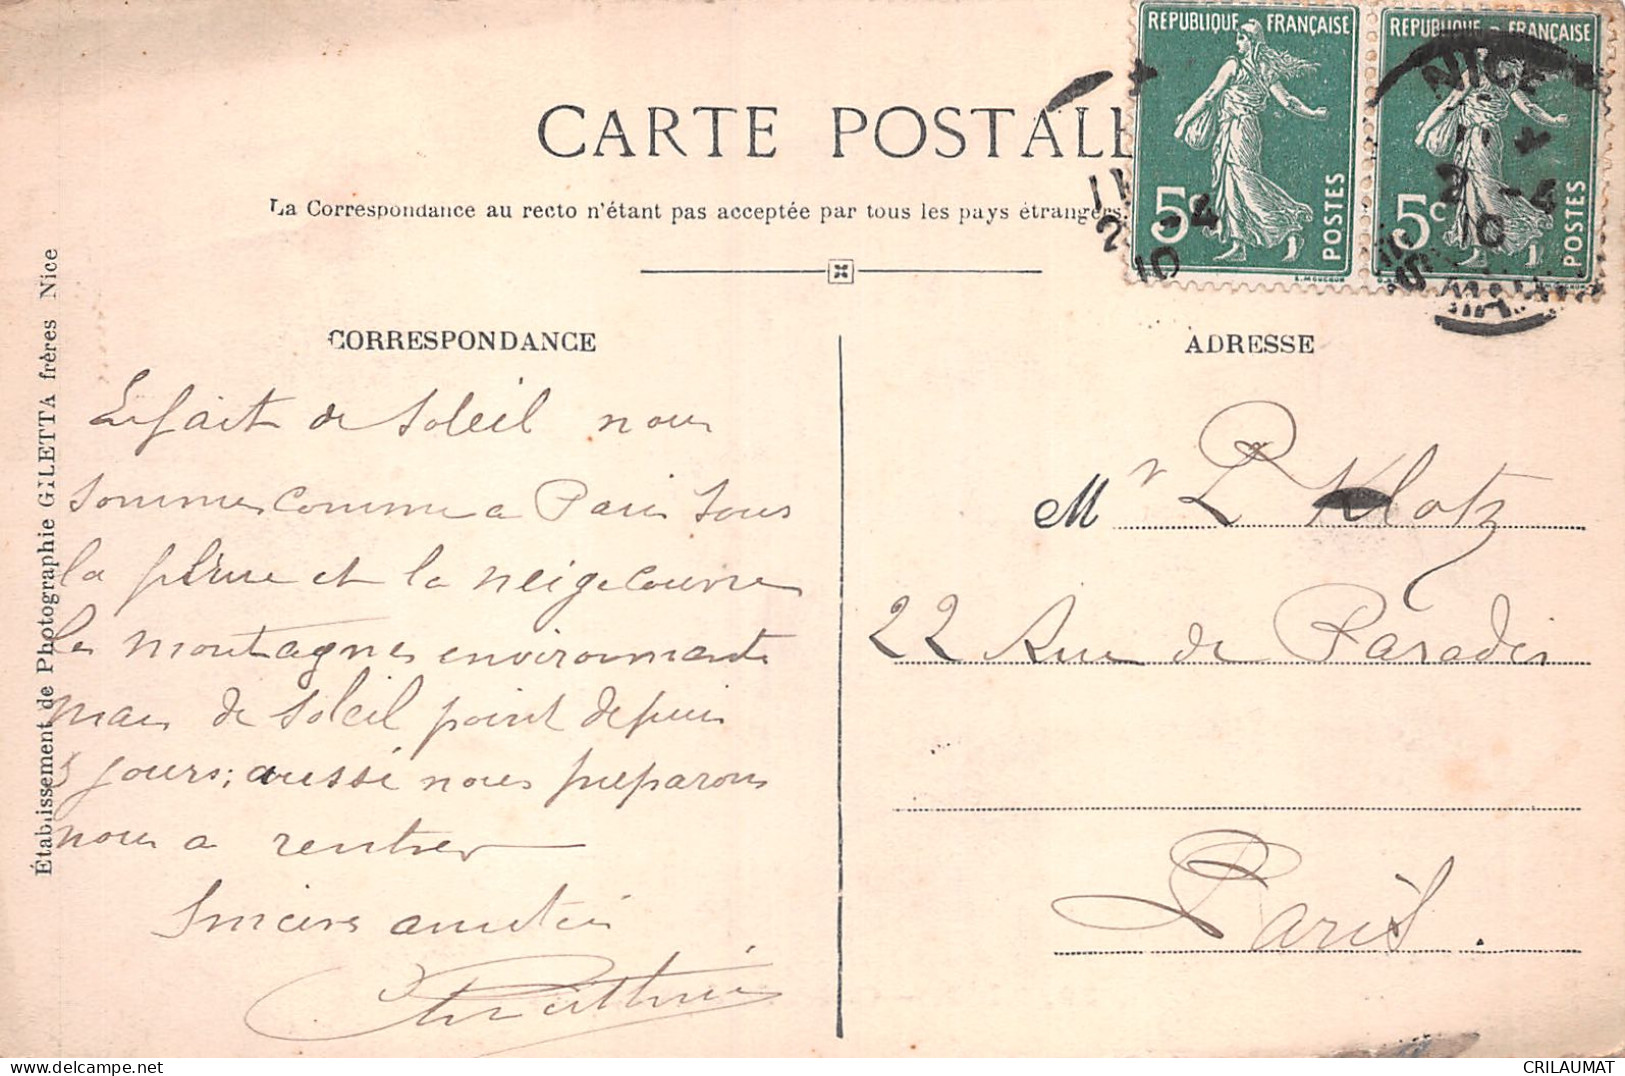 CARTE POSTALE
La Correspondance au recto n'étant pas acceptée par tous les pays étrangers.
RÉPUBLIQUE FRANÇAISE
5c
POSTES
RÉPUBLIQUE FRANÇAISE
5c
POSTES
NICE
11
2 - 4
10
11
2 - 4
10
Établissement de Photographie GILETTA frères Nice
CORRESPONDANCE
En fait de soleil nous
sommes comme a Paris sous
la pluie et la neige couvre
les montagnes environnantes
mais de soleil point depuis
3 jours; aussi nous preparons
nous a rentrer
Sincères amitiés
ADRESSE
Mr P Klotz
22 Rue de Paradis
Paris.
CRILAUMAT